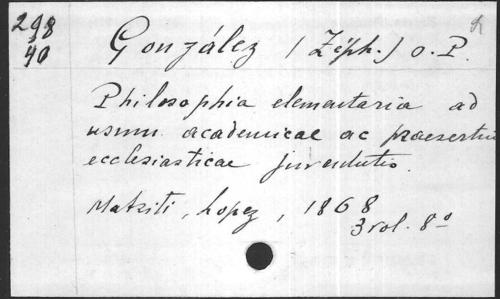 298
40
González (Zéph.) O. P.
Philosophia elementaria ad
usum academicae ac praesertim
ecclesiasticae juventutis.
Matriti, Lopez, 1868
3 vol. 8°